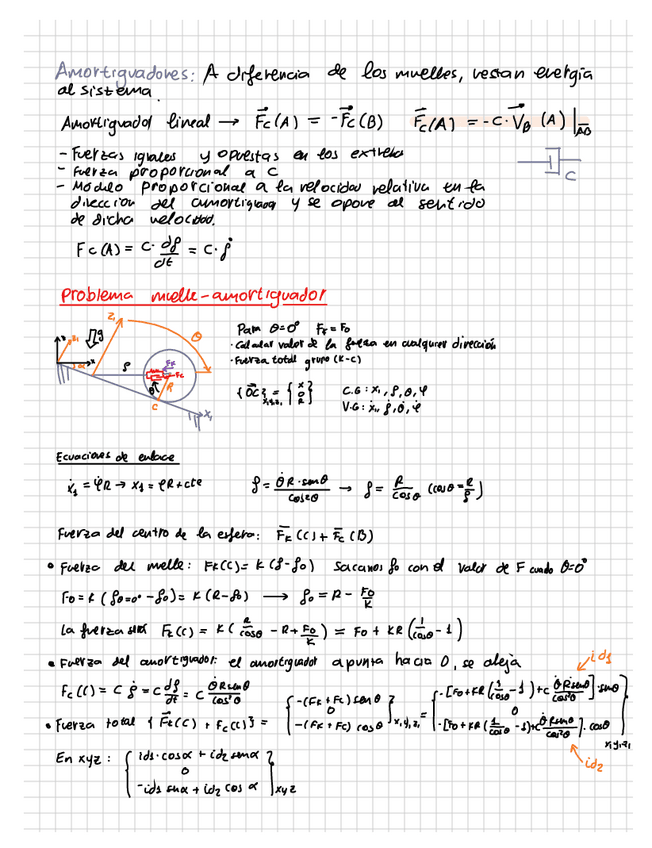 Amortiguadores: A diferencia de los muelles, restan energía
al sistema.
Amortiguador lineal → F⃗c(A) = -F⃗c(B)   F⃗c(A) = -C·V⃗B (A)|AB
- Fuerzas iguales y opuestas en los extremos
- Fuerza proporcional a C
- Módulo proporcional a la velocidad relativa en la
dirección del amortiguador y se opone al sentido
de dicha velocidad.
C
Fc(A) = C· dρ/dt = C·ρ̇
Problema muelle-amortiguador
Z1
g
θ
x
α
ρ
FK
Fc
θ
R
C
X1
Para θ=0° Fk=F0
· Calcular valor de la fuerza en cualquier dirección
· Fuerza total grupo (K-C)
{OC⃗}x1y1z1 = {x 0 R}
C.G: x1, ρ, θ, φ
V.G: ẋ1, ρ̇, θ̇, φ̇
Ecuaciones de enlace
ẋ1 = φ̇R → x1 = φR+cte
ρ̇ = θ̇R·senθ/cos²θ → ρ = R/cosθ (cosθ = R/ρ)
Fuerza del centro de la esfera: F̄K (C) + F̄c (B)
• Fuerza del muelle: FK(C) = K (ρ-ρ0) Sacamos ρ0 con el valor de F cuando θ=0°
F0 = K (ρθ=0° - ρ0) = K (R-ρ0) → ρ0 = R - F0/K
La fuerza será FK(C) = K (R/cosθ - R + F0/K) = F0 + KR (1/cosθ - 1)
• Fuerza del amortiguador: el amortiguador apunta hacia O, se aleja
Fc(C) = C ρ̇ = C dρ/dt = C θ̇Rsenθ/cos²θ
• Fuerza total {F⃗k(C) + Fc(C)} = {-(FK + Fc) senθ, 0, -(FK + Fc) cosθ}x1y1z1 = {-[F0+KR(1/cosθ - 1)+C θ̇Rsenθ/cos²θ]·senθ, 0, -[F0+KR(1/cosθ - 1)+C θ̇Rsenθ/cos²θ]·cosθ}x1y1z1
id1
id2
En xyz: {id1·cosα + id2 senα, 0, -id1 senα + id2 cosα}xyz